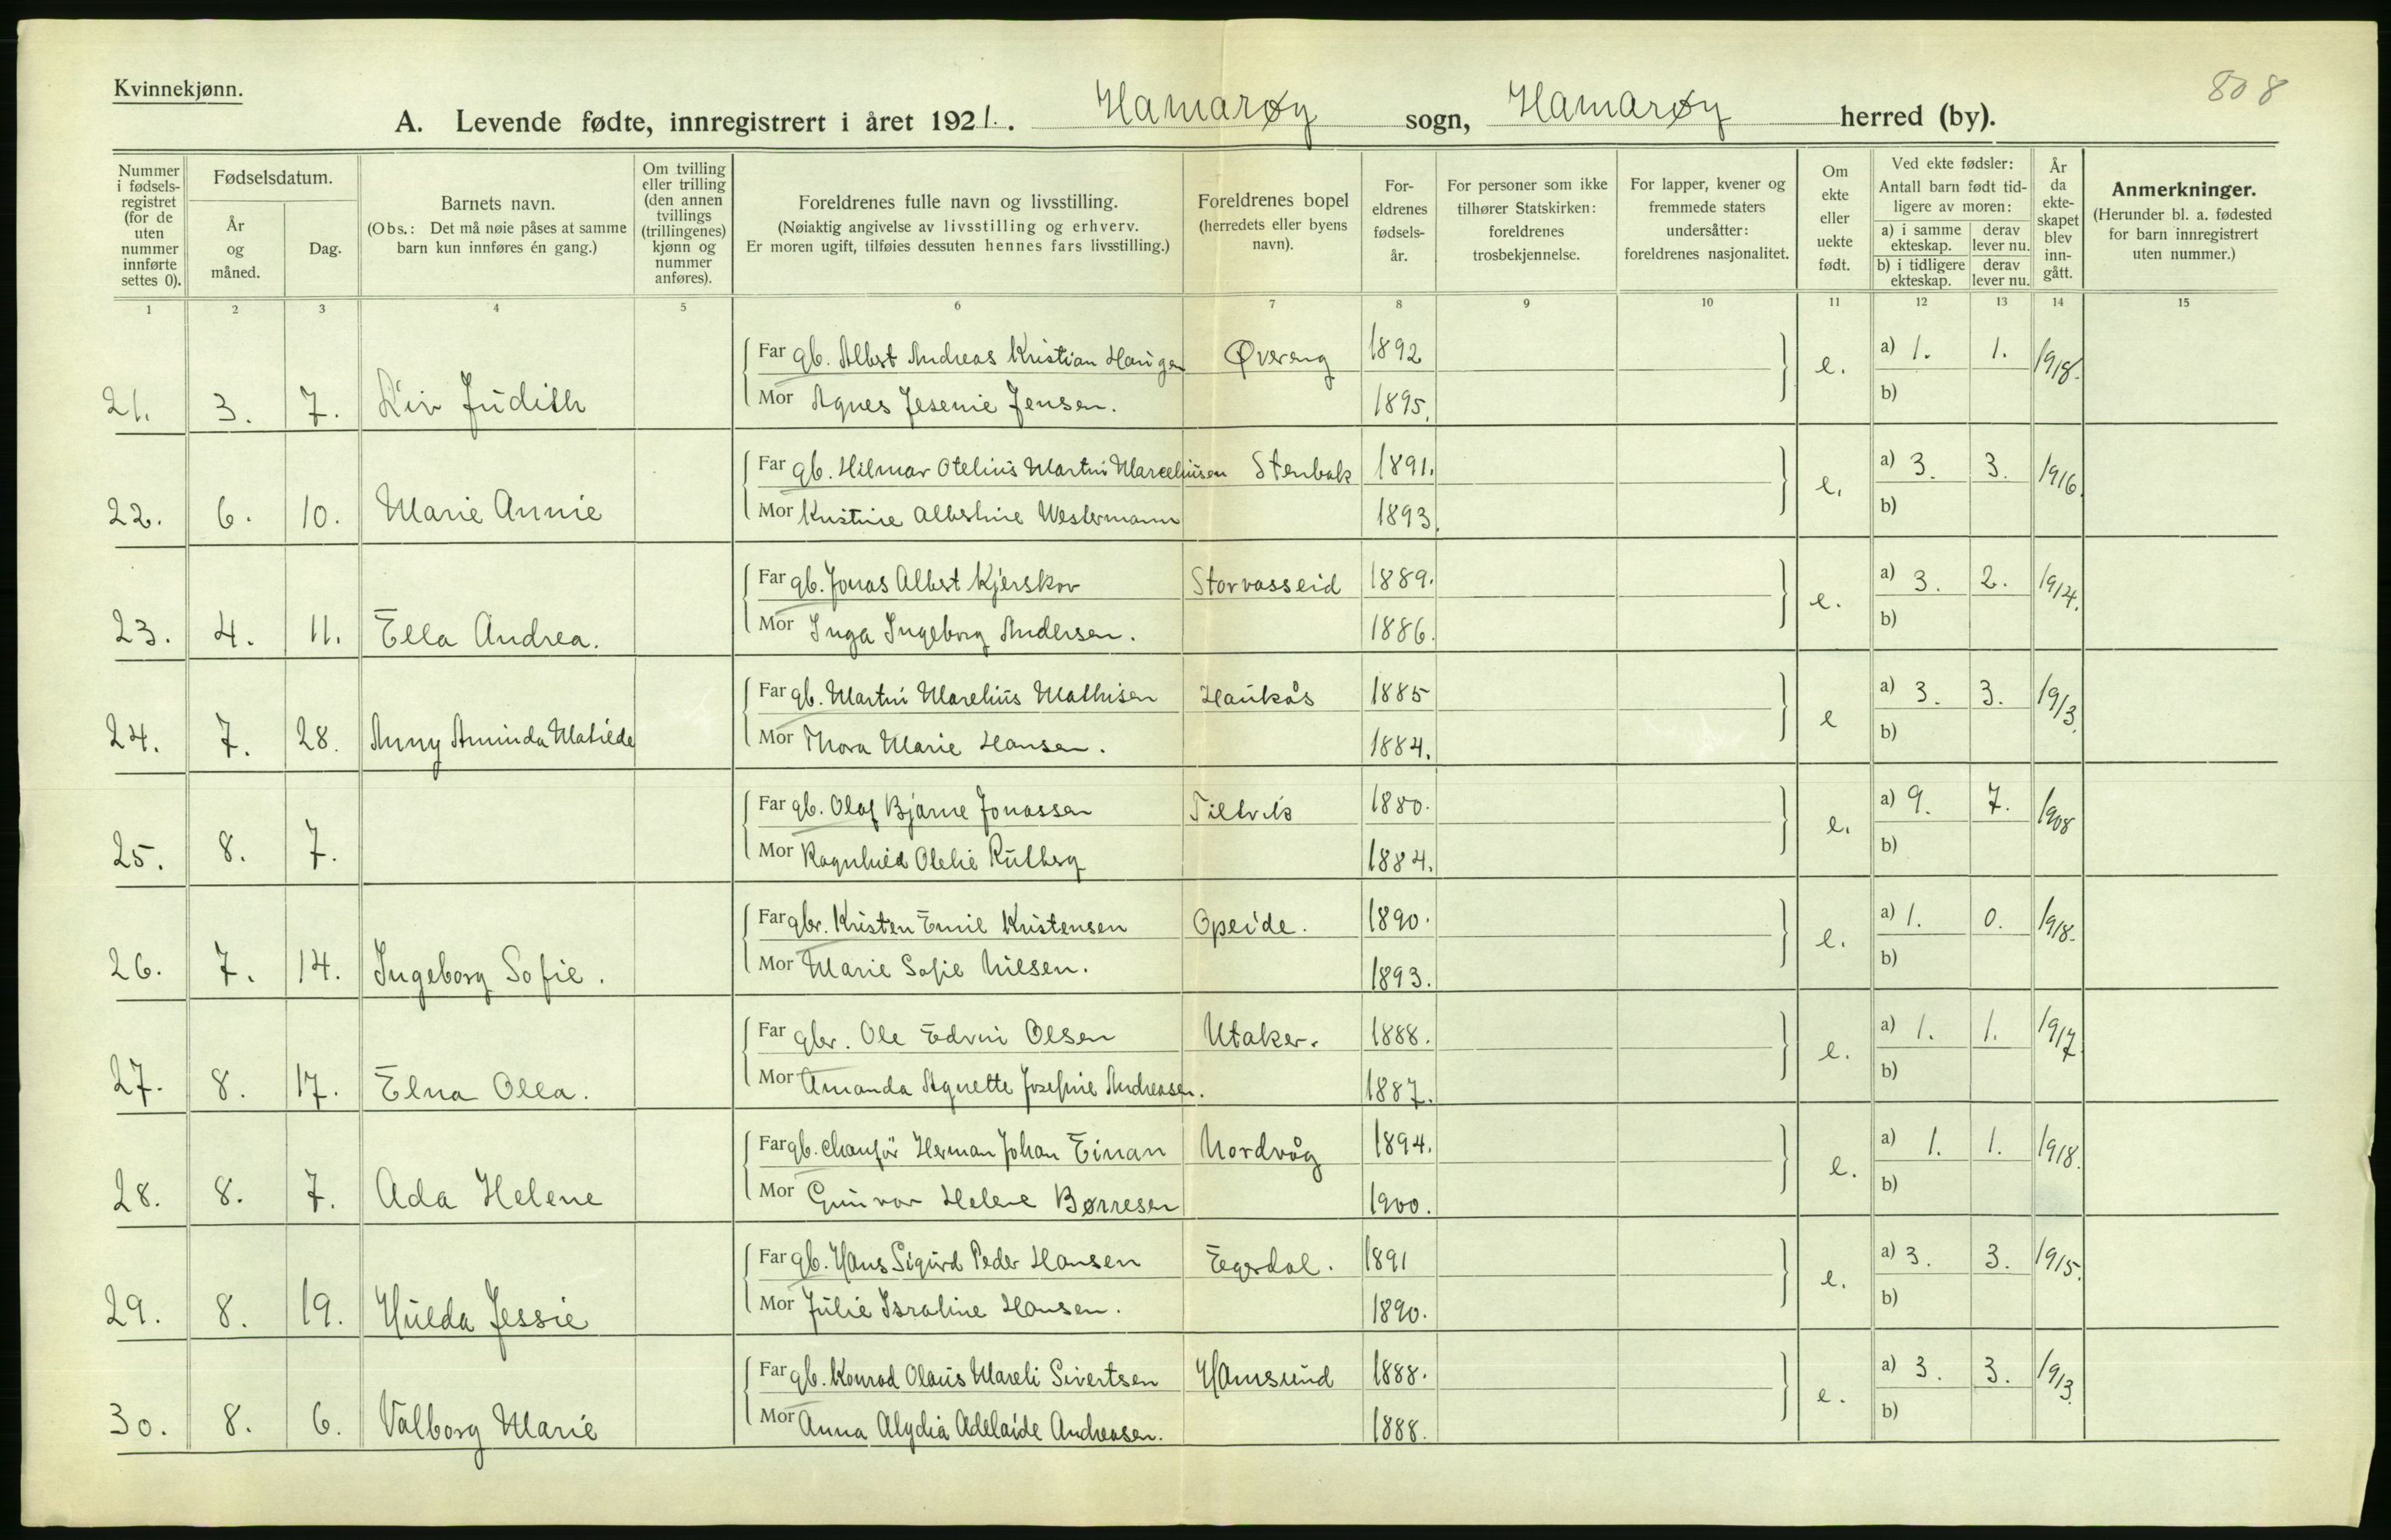 Kvinnekjønn.
808
A. Levende fødte, innregistrert i året 1921. Hamarøy sogn, Hamarøy herred (by).
Nummer i fødsels-registret (for de uten nummer innførte settes 0).
Fødselsdatum.
År og måned.
Dag.
Barnets navn.
(Obs.: Det må nøie påses at samme barn kun innføres én gang.)
Om tvilling eller trilling (den annen tvillings (trillingenes) kjønn og nummer anføres).
Foreldrenes fulle navn og livsstilling.
(Nøiaktig angivelse av livsstilling og erhverv.
Er moren ugift, tilføies dessuten hennes fars livsstilling.)
Foreldrenes bopel
(herredets eller byens navn).
For-eldrenes fødsels-år.
For personer som ikke tilhører Statskirken: foreldrenes trosbekjennelse.
For lapper, kvener og fremmede staters undersåtter: foreldrenes nasjonalitet.
Om ekte eller uekte født.
Ved ekte fødsler:
Antall barn født tid-ligere av moren:
a) i samme ekteskap.
derav lever nu.
b) i tidligere ekteskap.
derav lever nu.
År da ekte-skapet blev inn-gått.
Anmerkninger.
(Herunder bl. a. fødested for barn innregistrert uten nummer.)
1 2 3 4 5 6 7 8 9 10 11 12 13 14 15
Far gb. Albert Andreas Kristian Haugen Øvereng 1892 e. a) 1. 1. 1918.
21. 3. 7. Liv Judith Mor Agnes Jesenie Jensen. 1895. b)
Far gb. Hilmar Otelius Martin Marceliusen Stenbak 1891. e. a) 3. 3. 1916.
22. 6. 10. Marie Annie Mor Kristine Albertine Westermann 1893. b)
Far gb. Jonas Albert Kjerskov Storvasseid 1889. e. a) 3. 2. 1914.
23. 4. 11. Ella Andrea. Mor Inga Ingeborg Andersen. 1886. b)
Far gb. Martin Marelius Mathisen Haukås 1885 e a) 3. 3. 1913.
24. 7. 28. Anny Aminda Matilde Mor Thora Marie Hansen. 1884. b)
Far gb. Olaf Bjarne Jonassen 1880. e. a) 9. 7. 1908
25. 8. 7. Mor Ragnhild Olelie 1884. b)
Far gbr. Kristen Emil Kristensen Opeide. 1890. e. a) 1. 0. 1918.
26. 7. 14. Ingeborg Sofie. Mor Marie Sofie Nilsen. 1893. b)
Far gbr. Ole Edvin Olsen Utaker. 1888. e. a) 1. 1. 1917
27. 8. 17. Elna Olea. Mor Amanda Agnette Josefine Andreasen. 1887. b)
Far gb. chauför Herman Johan Einan Nordvåg 1894. e. a) 1. 1. 1918.
28. 8. 7. Ada Helene Mor Gunvor Helene Børresen 1900. b)
Far gb. Hans Sigurd Peder Hansen Egerdal. 1891 e. a) 3. 3. 1915.
29. 8. 19. Hulda Jessie Mor Julie Israline Hansen. 1890. b)
Far gb. Konrad Olaus Mareli Sivertsen Hamsund 1888. e. a) 3. 3. 1913.
30. 8. 6. Valborg Marie Mor Anna Alydia Adelaide Andreasen. 1888. b)